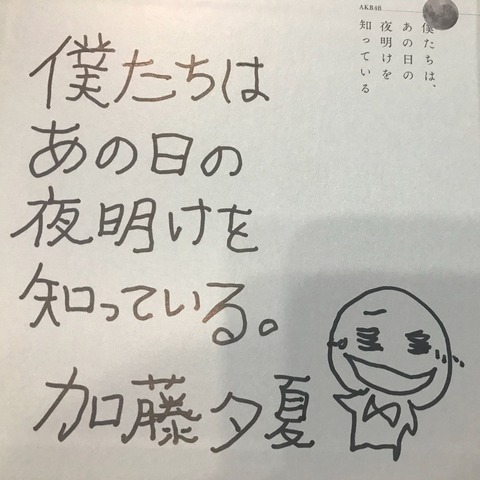 AKB48
僕たちは、
あの日の
夜明けを
知っている
僕たちは
あの日の
夜明けを
知っている。
加藤夕夏